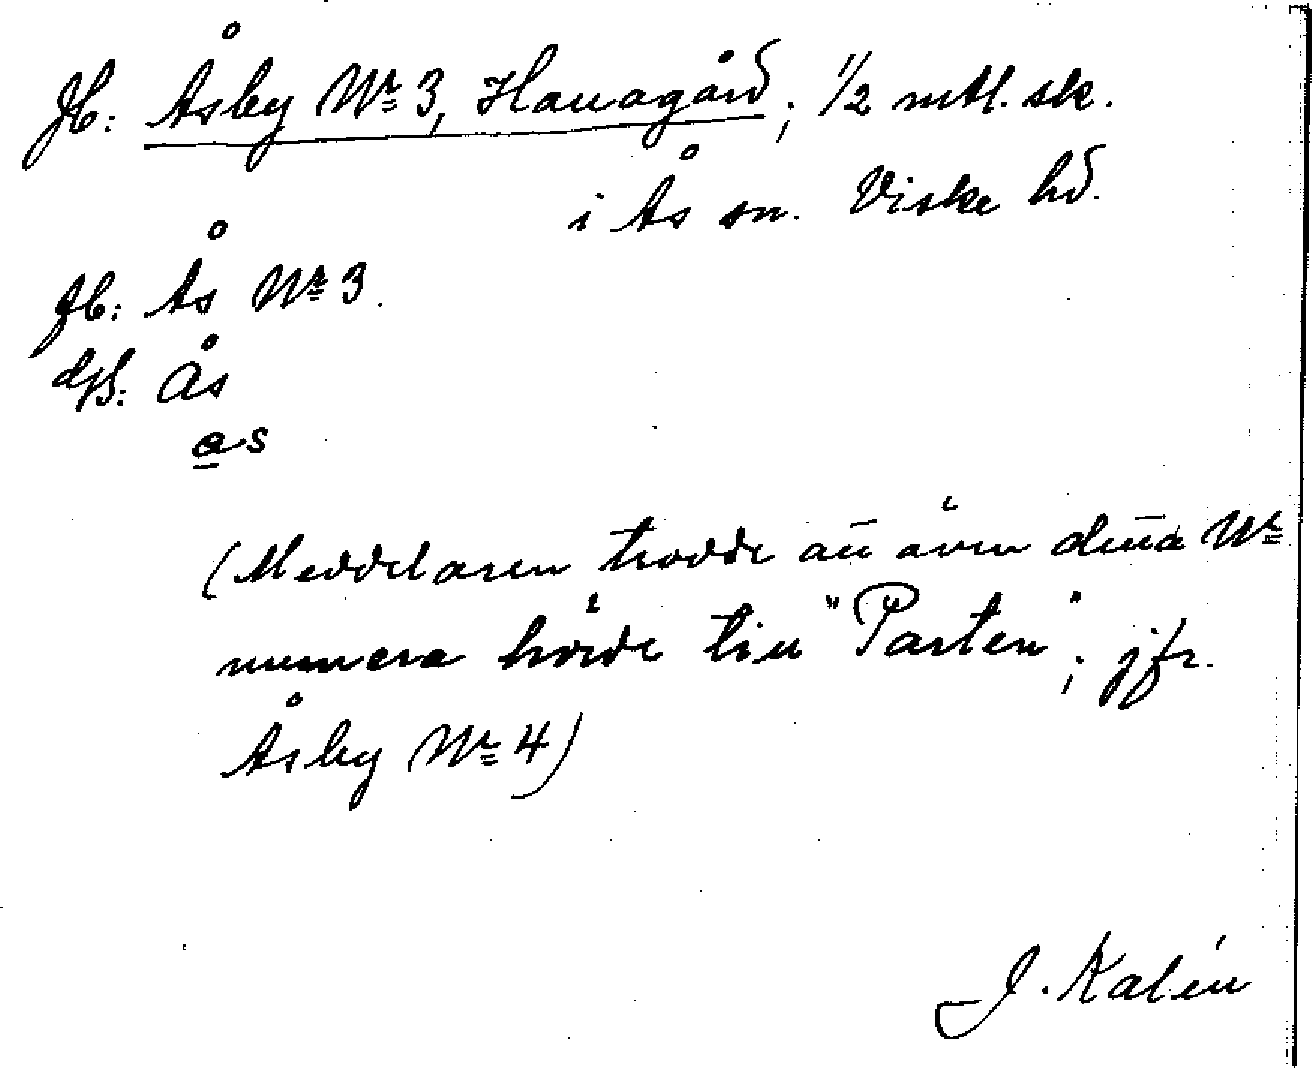 Jb: Åsby Nr 3, Hanagård; 1/2 mtl. sk.
i Ås sn. Viske hd.
Jb: Ås Nr 3.
Ås
as
(Meddelaren trodde att även denna Nr
numera hörde till "Parten"; jfr.
Åsby Nr 4)
J. Kalén